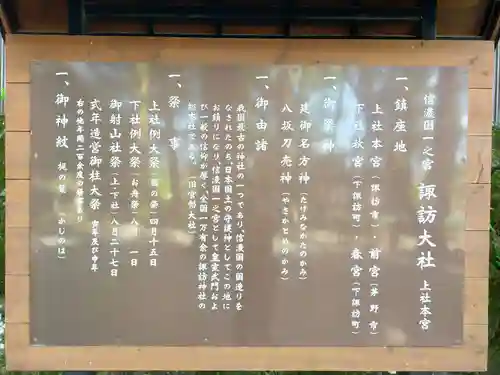 信濃國一之宮 諏訪大社 上社本宮
一、鎮座地
上社本宮(諏訪市)、前宮(茅野市)
下社秋宮(下諏訪町)、春宮(下諏訪町)
一、御祭神
建御名方神(たけみなかたのかみ)
八坂刀売神(やさかとめのかみ)
一、御由緒
我國最古の神社の一つであり、信濃國の國造りを
なされたのち、日本国土の守護神としてこの地に
お鎮りになり、信濃國一之宮として皇室武門およ
び一般の信仰が厚く、全国一万有余の諏訪神社の
総本社である。(旧官幣大社)
一、祭事
上社例大祭(御頭祭)四月十五日
下社例大祭(お舟祭)八月 一日
御射山社祭(上・下社)八月二十七日
式年造営御柱大祭 寅年及び申年
右の他年間二百余度の祭事あり
一、御神紋 梶の葉(かじのは)